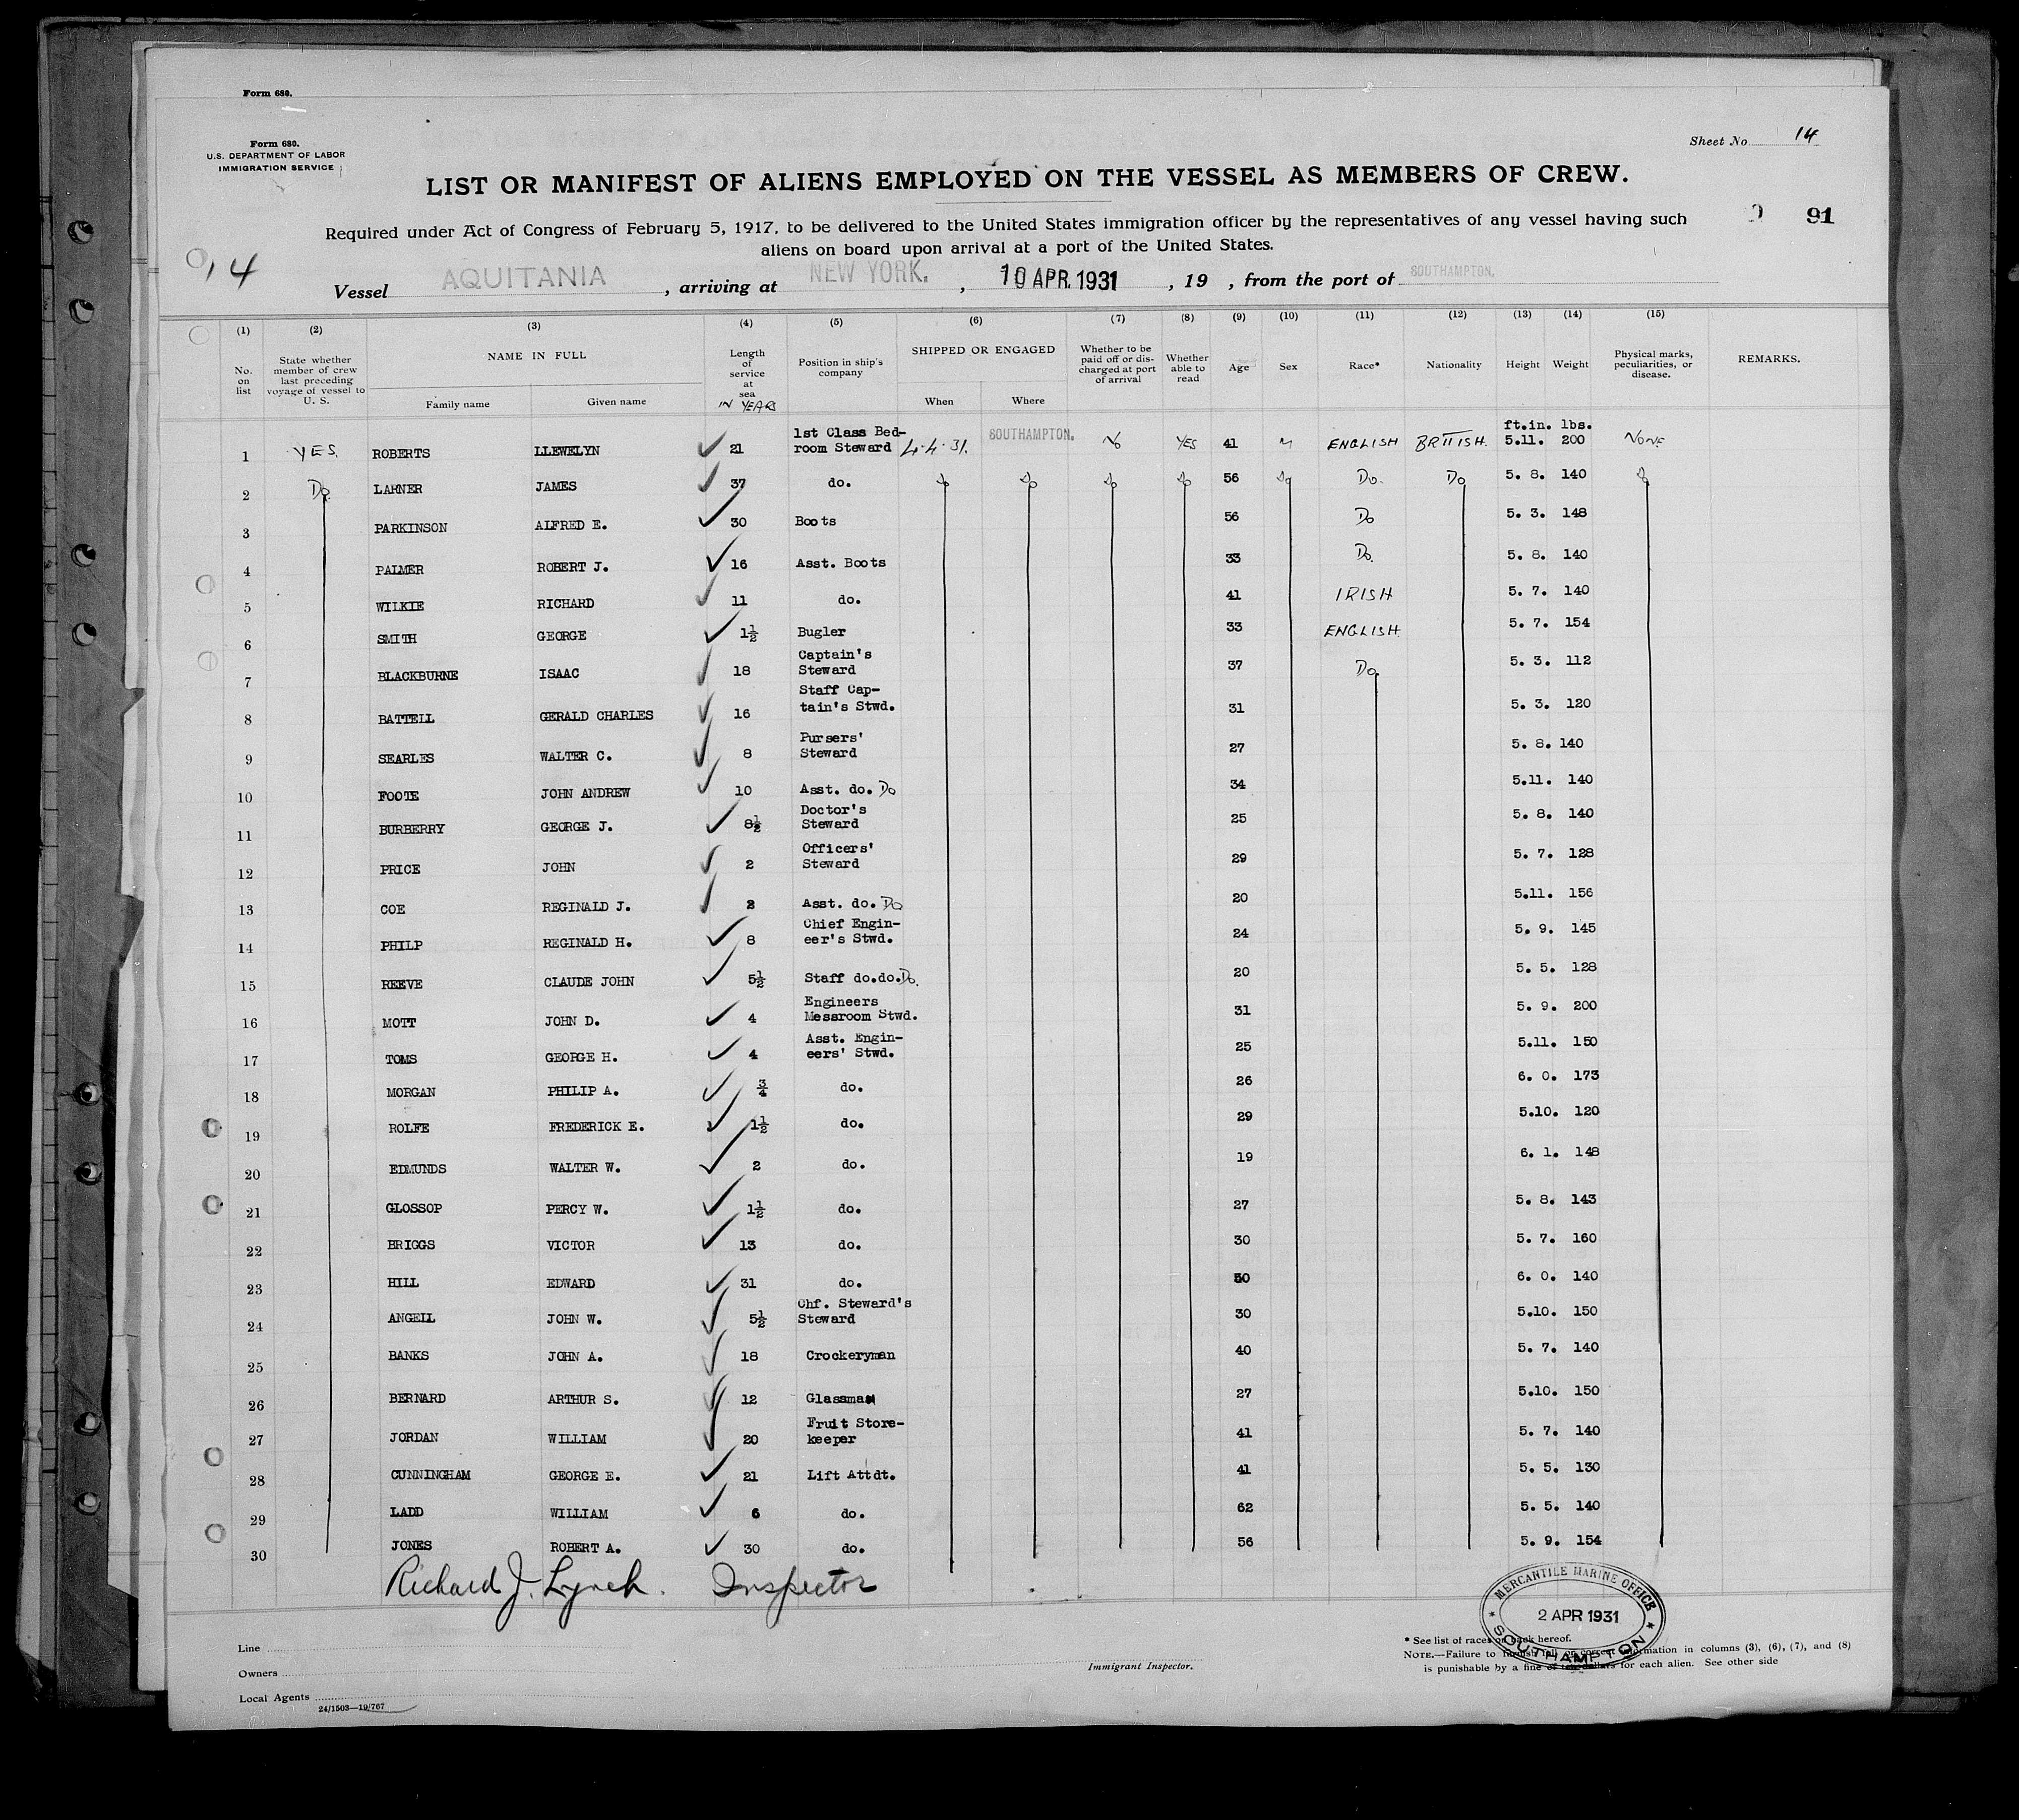 Form 680.
Form 680.
U.S. DEPARTMENT OF LABOR
IMMIGRATION SERVICE
Sheet No. 14
LIST OR MANIFEST OF ALIENS EMPLOYED ON THE VESSEL AS MEMBERS OF CREW.
Required under Act of Congress of February 5, 1917, to be delivered to the United States immigration officer by the representatives of any vessel having such
aliens on board upon arrival at a port of the United States.
91
14
Vessel AQUITANIA , arriving at NEW YORK. , 10 APR. 1931 , 19 , from the port of SOUTHAMPTON.
(1) (2) (3) (4) (5) (6) (7) (8) (9) (10) (11) (12) (13) (14) (15)
No. on list
State whether member of crew last preceding voyage of vessel to U. S.
NAME IN FULL
Family name Given name
Length of service at sea IN YEARS
Position in ship's company
SHIPPED OR ENGAGED
When Where
Whether to be paid off or discharged at port of arrival
Whether able to read
Age Sex Race* Nationality Height Weight
Physical marks, peculiarities, or disease.
REMARKS.
ft.in. lbs.
1 YES. ROBERTS LLEWELYN 21 1st Class Bed-room Steward 4.4.31. SOUTHAMPTON. No YES 41 M ENGLISH BRITISH. 5.11. 200 NONE
2 Do. LARNER JAMES 37 do. Do Do Do Do 56 Do Do. Do 5. 8. 140 Do
3 PARKINSON ALFRED E. 30 Boots 56 Do 5. 3. 148
4 PALMER ROBERT J. 16 Asst. Boots 33 Do. 5. 8. 140
5 WILKIE RICHARD 11 do. 41 IRISH 5. 7. 140
6 SMITH GEORGE 1½ Bugler 33 ENGLISH. 5. 7. 154
7 BLACKBURNE ISAAC 18 Captain's Steward 37 Do. 5. 3. 112
8 BATTELL GERALD CHARLES 16 Staff Cap-tain's Stwd. 31 5. 3. 120
9 SEARLES WALTER C. 8 Pursers' Steward 27 5. 8. 140
10 FOOTE JOHN ANDREW 10 Asst. do. Do 34 5.11. 140
11 BURBERRY GEORGE J. 8½ Doctor's Steward 25 5. 8. 140
12 PRICE JOHN 2 Officers' Steward 29 5. 7. 128
13 COE REGINALD J. 2 Asst. do. Do 20 5.11. 156
14 PHILP REGINALD H. 8 Chief Engin-eer's Stwd. 24 5. 9. 145
15 REEVE CLAUDE JOHN 5½ Staff do.do.Do. 20 5. 5. 128
16 MOTT JOHN D. 4 Engineers Messroom Stwd. 31 5. 9. 200
17 TOMS GEORGE H. 4 Asst. Engin-eers' Stwd. 25 5.11. 150
18 MORGAN PHILIP A. ¾ do. 26 6. 0. 173
19 ROLFE FREDERICK E. 1½ do. 29 5.10. 120
20 EDMUNDS WALTER W. 2 do. 19 6. 1. 148
21 GLOSSOP PERCY W. 1½ do. 27 5. 8. 143
22 BRIGGS VICTOR 13 do. 30 5. 7. 160
23 HILL EDWARD 31 do. 50 6. 0. 140
24 ANGELL JOHN W. 5½ Chf. Steward's Steward 30 5.10. 150
25 BANKS JOHN A. 18 Crockeryman 40 5. 7. 140
26 BERNARD ARTHUR S. 12 Glassman 27 5.10. 150
27 JORDAN WILLIAM 20 Fruit Store-keeper 41 5. 7. 140
28 CUNNINGHAM GEORGE E. 21 Lift Attdt. 41 5. 5. 130
29 LADD WILLIAM 6 do. 62 5. 5. 140
30 JONES ROBERT A. 30 do. 56 5. 9. 154
Richard J. Lynch. Inspector
MERCANTILE MARINE OFFICE
2 APR 1931
SOUTHAMPTON
Line
Owners
Local Agents
24/1503—19/767
Immigrant Inspector.
* See list of races on back hereof.
NOTE.—Failure to furnish full or correct information in columns (3), (6), (7), and (8)
is punishable by a fine of ten dollars for each alien. See other side